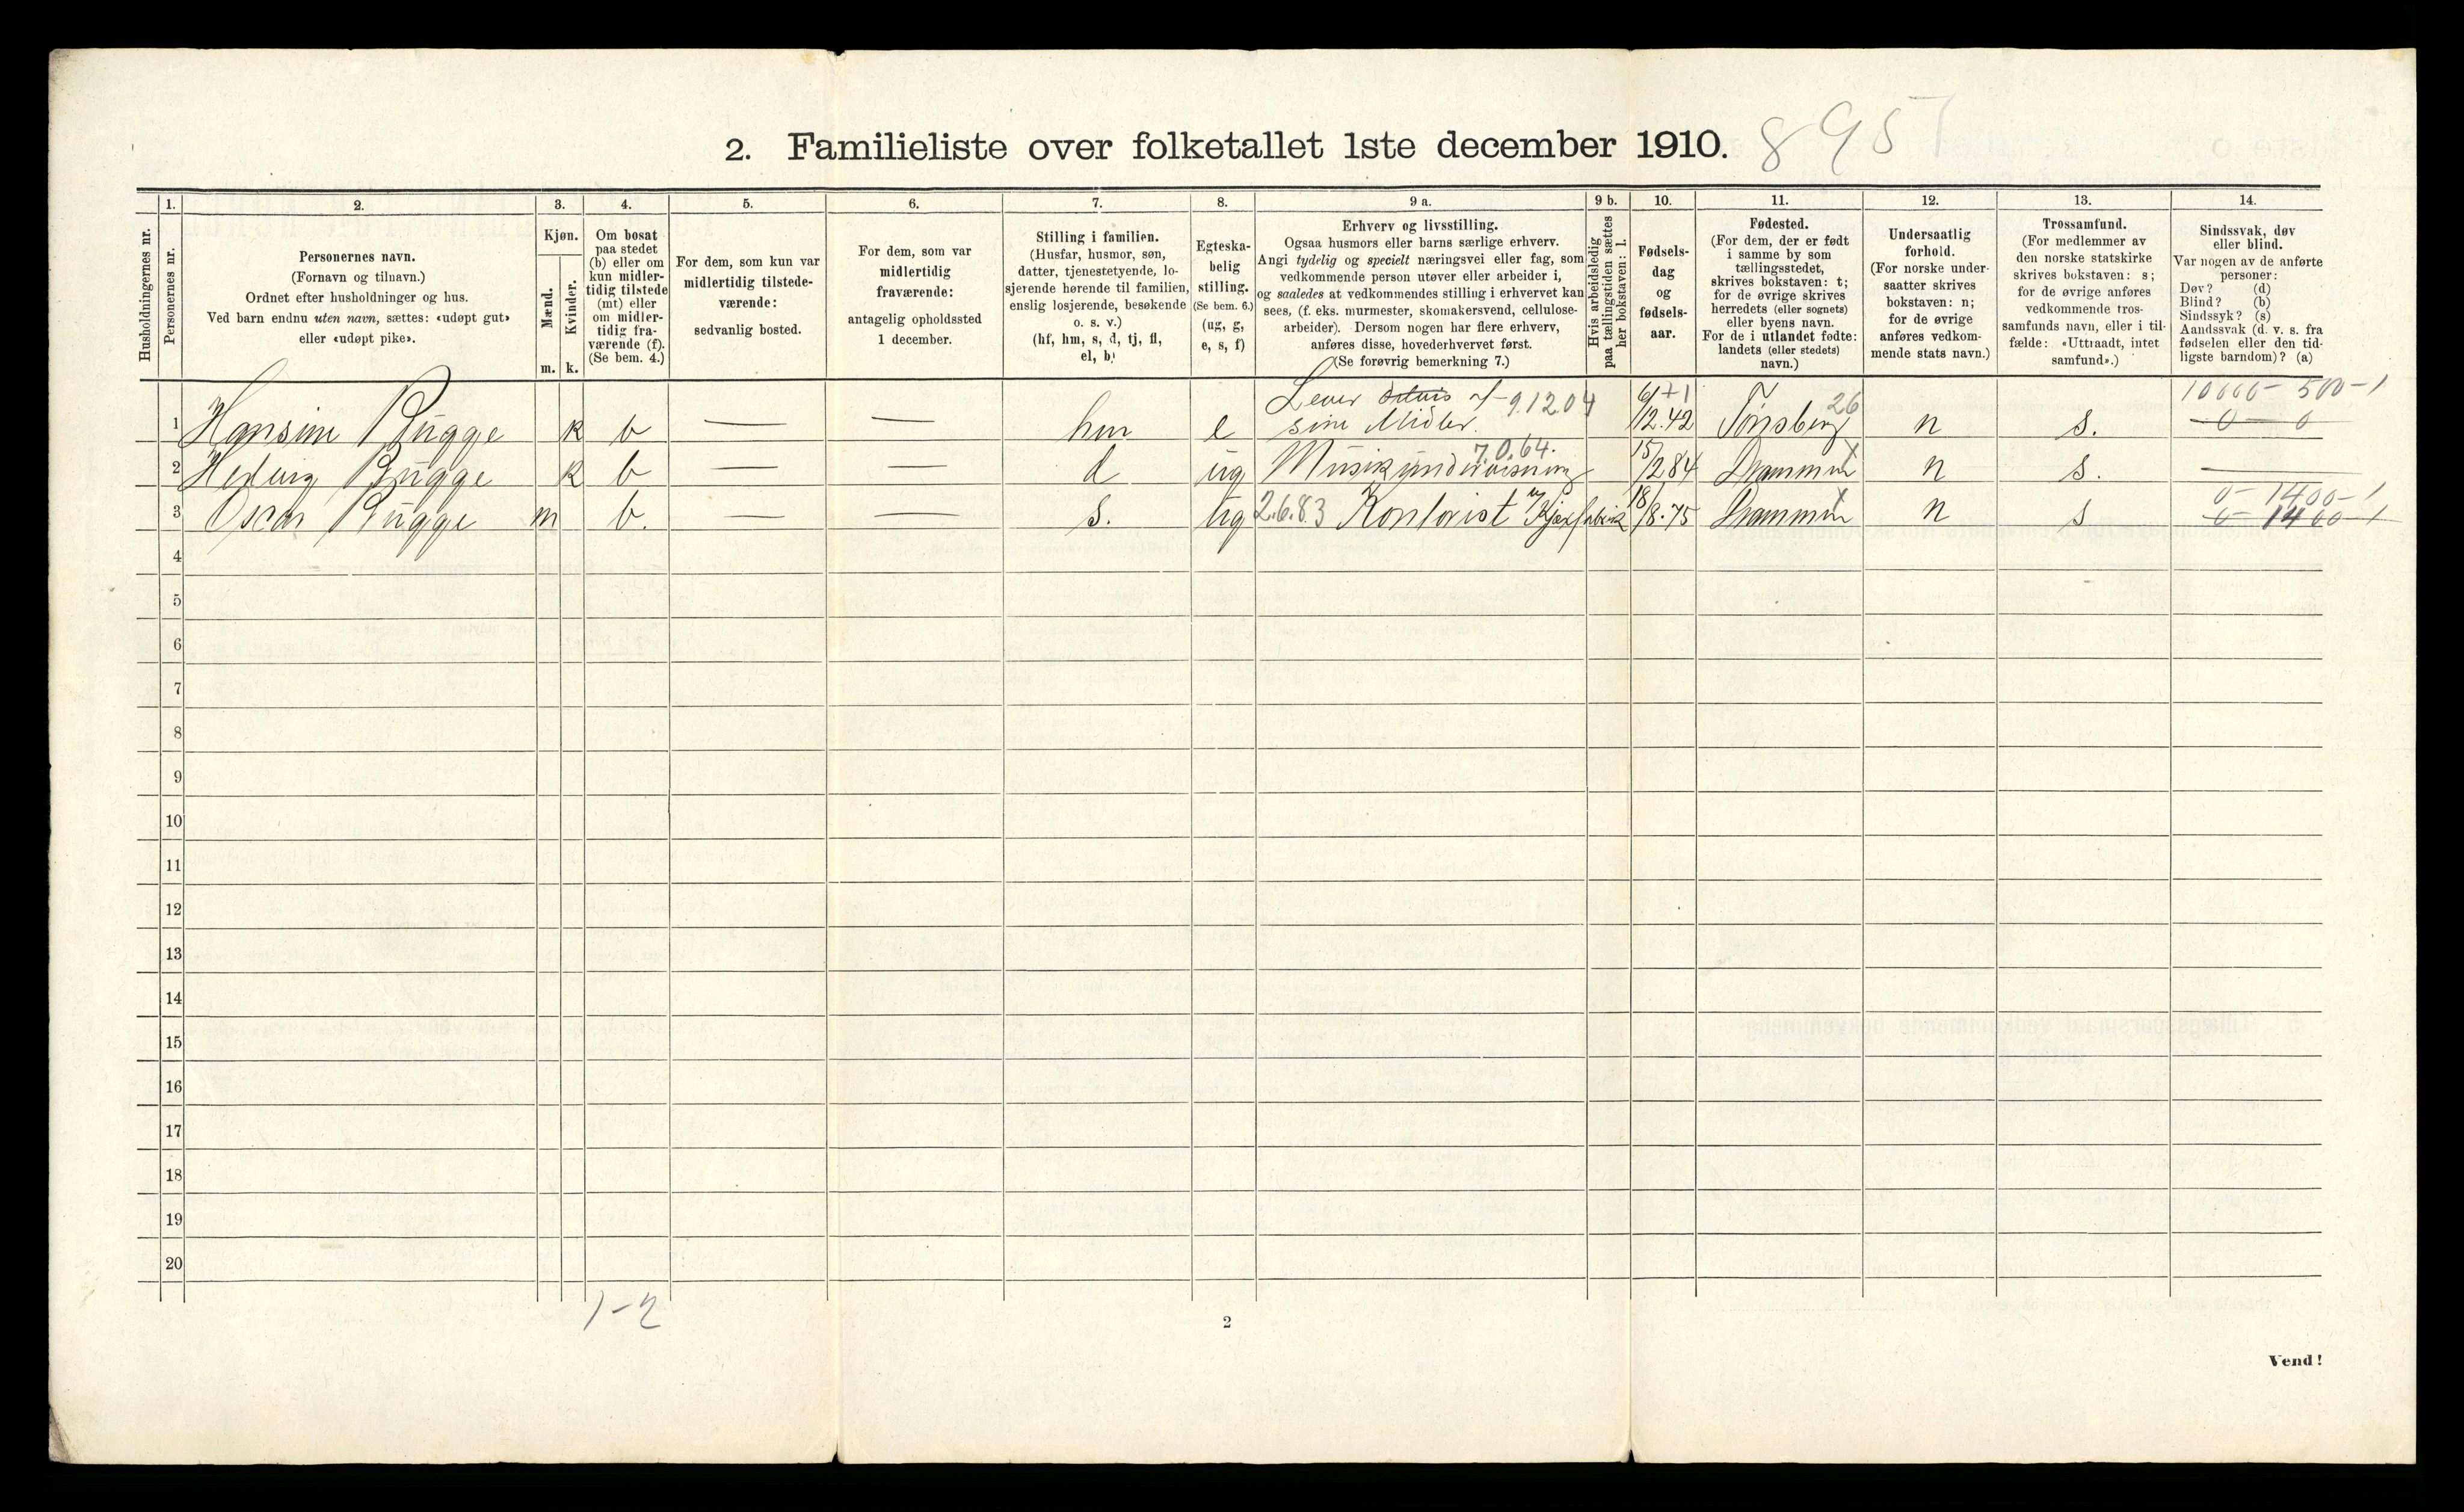 2. Familieliste over folketallet 1ste december 1910. 8951
Husholdningernes nr.
1.
Personernes nr.
2.
Personernes navn.
(Fornavn og tilnavn.)
Ordnet efter husholdninger og hus.
Ved barn endnu uten navn, sættes: «udøpt gut»
eller «udøpt pike».
3.
Kjøn.
Mænd.
Kvinder.
m. k.
4.
Om bosat
paa stedet
(b) eller om
kun midler-
tidig tilstede
(mt) eller
om midler-
tidig fra-
værende (f).
(Se bem. 4.)
5.
For dem, som kun var
midlertidig tilstede-
værende:
sedvanlig bosted.
6.
For dem, som var
midlertidig
fraværende:
antagelig opholdssted
1 december.
7.
Stilling i familien.
(Husfar, husmor, søn,
datter, tjenestetyende, lo-
sjerende hørende til familien,
enslig losjerende, besøkende
o. s. v.)
(hf, hm, s, d, tj, fl,
el, b)
8.
Egteska-
belig
stilling.
(Se bem. 6.)
(ug, g,
e, s, f)
9 a.
Erhverv og livsstilling.
Ogsaa husmors eller barns særlige erhverv.
Angi tydelig og specielt næringsvei eller fag, som
vedkommende person utøver eller arbeider i,
og saaledes at vedkommendes stilling i erhvervet kan
sees, (f. eks. murmester, skomakersvend, cellulose-
arbeider). Dersom nogen har flere erhverv,
anføres disse, hovederhvervet først.
(Se forøvrig bemerkning 7.)
9 b.
Hvis arbeidsledig
paa tællingstiden sættes
her bokstaven: l.
10.
Fødsels-
dag
og
fødsels-
aar.
11.
Fødested.
(For dem, der er født
i samme by som
tællingsstedet,
skrives bokstaven: t;
for de øvrige skrives
herredets (eller sognets)
eller byens navn.
For de i utlandet fødte:
landets (eller stedets)
navn.)
12.
Undersaatlig
forhold.
(For norske under-
saatter skrives
bokstaven: n;
for de øvrige
anføres vedkom-
mende stats navn.)
13.
Trossamfund.
(For medlemmer av
den norske statskirke
skrives bokstaven: s;
for de øvrige anføres
vedkommende tros-
samfunds navn, eller i til-
fælde: «Uttraadt, intet
samfund».)
14.
Sindssvak, døv
eller blind.
Var nogen av de anførte
personer:
Døv? (d)
Blind? (b)
Sindssyk? (s)
Aandssvak (d. v. s. fra
fødselen eller den tid-
ligste barndom)? (a)
Lever af 9.12.04 6/ +1 26 10000 - 500 - 1
1 Hansine Bugge k b — — hm e sine Midler. /12.42 Tønsberg n s. 0 - 0
7.0.64.
2 Hedvig Bugge k b — — d ug Musikundervisning 15/2 84 Drammen n s. —
0 - 1400 - 1
3 Oscar Bugge m b. — — s. ug 2.6.83 Kontorist v/ Kjexfabrik 18/8.75 Drammen n s 0 - 1400 - 1
4
5
6
7
8
9
10
11
12
13
14
15
16
17
18
19
20
1-2
2
Vend!